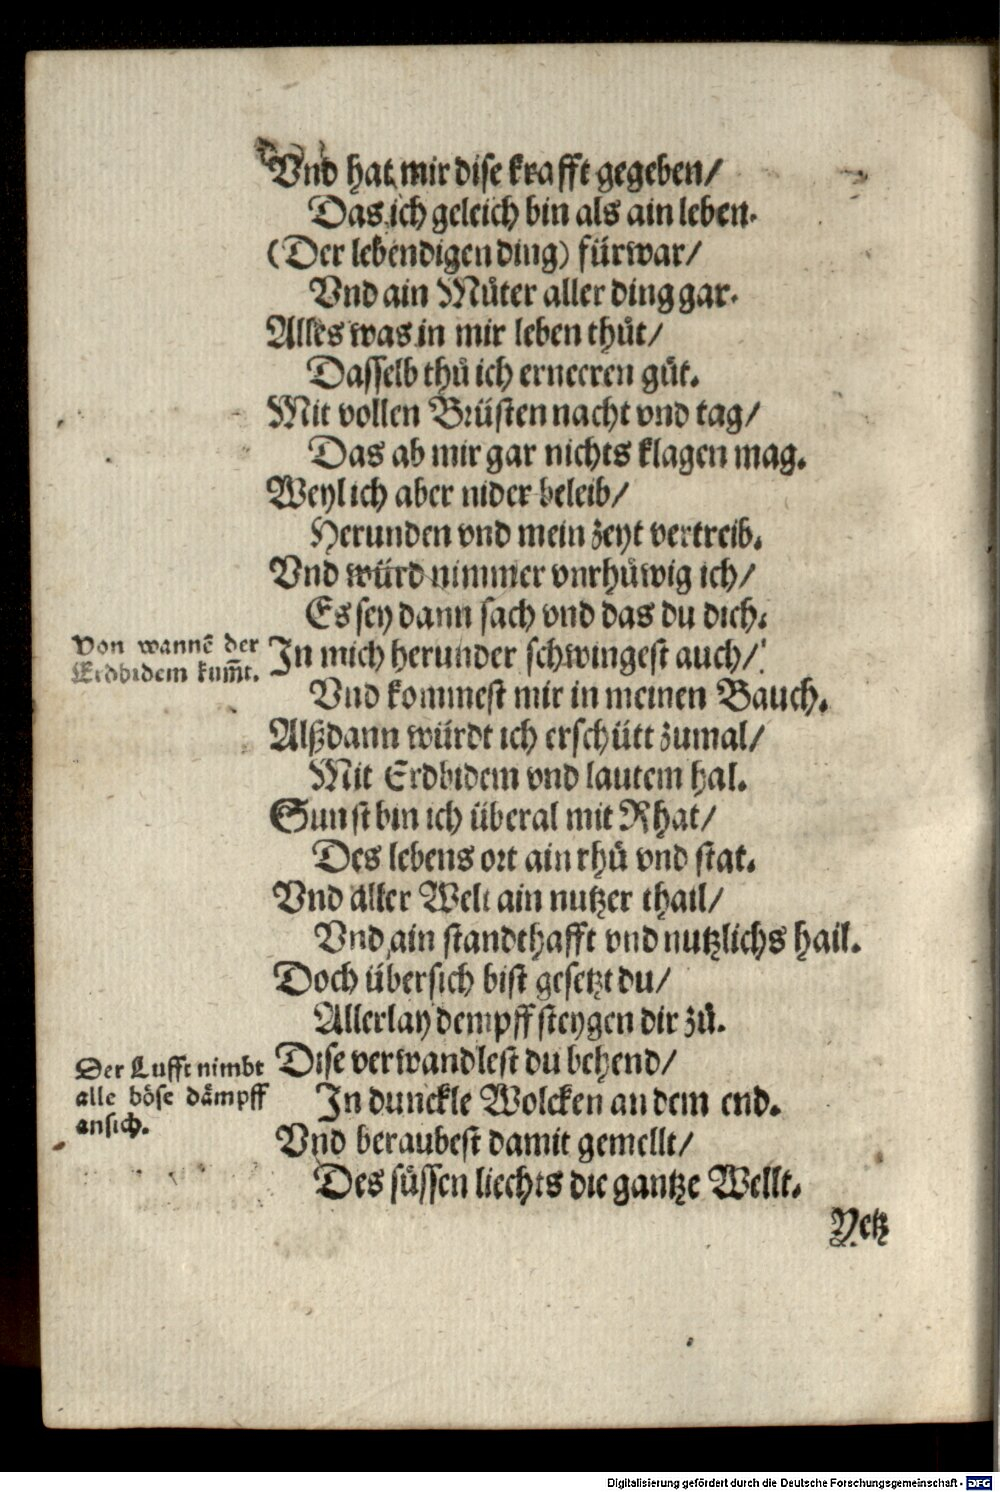 Vnd hat mir dise krafft gegeben/
Das ich geleich bin als ain leben.
(Der lebendigen ding) fürwar/
Vnd ain Muͦter aller ding gar.
Alles was in mir leben thuͦt/
Dasselb thuͦ ich erneeren guͦt.
Mit vollen Brüsten nacht vnd tag/
Das ab mir gar nichts klagen mag.
Weyl ich aber nider beleib/
Herunden vnd mein zeyt vertreib.
Vnd würd nimmer vnrhuͤwig ich/
Es sey dann sach vnd das du dich.
Von wannē der
Erdbidem kum̄t.
In mich herunder schwingest auch/
Vnd kommest mir in meinen Bauch.
Alßdann würdt ich erschütt zumal/
Mit Erdbidem vnd lautem hal.
Sunst bin ich überal mit Rhat/
Des lebens ort ain rhuͦ vnd stat.
Vnd aller Welt ain nutzer thail/
Vnd ain standthafft vnd nutzlichs hail.
Doch übersich bist gesetzt du/
Allerlay dempff steygen dir zuͦ.
Der Lufft nimbt
alle böse dämpff
ansich.
Dise verwandlest du behend/
In dunckle Wolcken an dem end.
Vnd beraubest damit gemellt/
Des suͤssen liechts die gantze Wellt.
Yetz
Digitalisierung gefördert durch die Deutsche Forschungsgemeinschaft - DFG